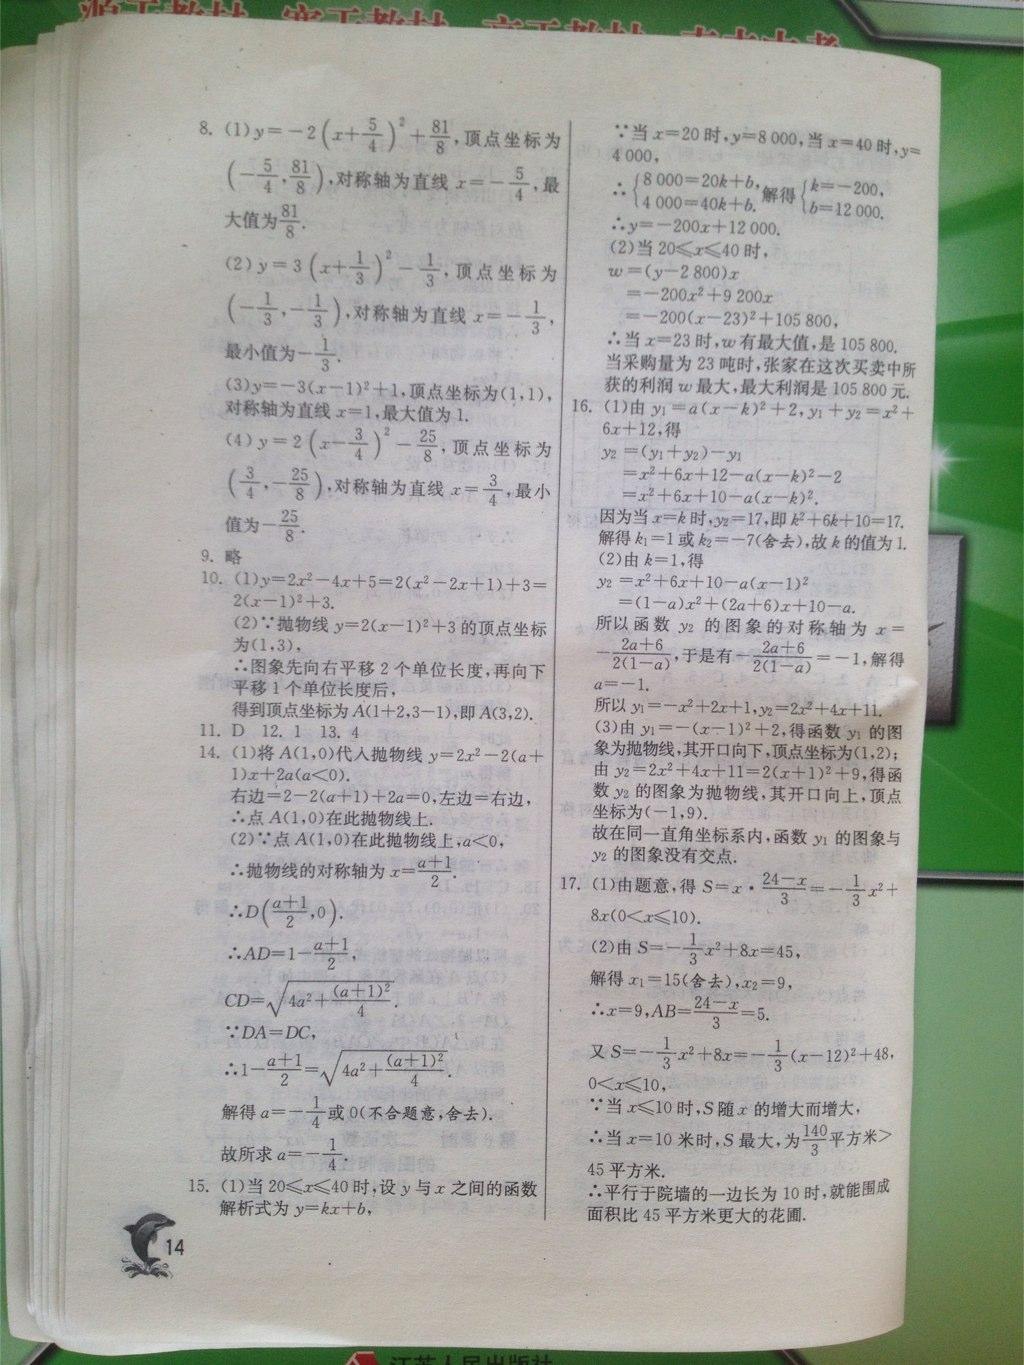 8. (1)y=-2(x+5/4)²+81/8,顶点坐标为
(-5/4,81/8),对称轴为直线 x=-5/4,最
大值为81/8.
(2) y=3(x+1/3)²-1/3,顶点坐标为
(-1/3,-1/3),对称轴为直线 x=-1/3,
最小值为-1/3.
(3)y=-3(x-1)²+1,顶点坐标为(1,1),
对称轴为直线 x=1,最大值为 1.
(4) y=2(x-3/4)²-25/8,顶点坐标为
(3/4,-25/8),对称轴为直线 x=3/4,最小
值为-25/8.
9. 略
10. (1)y=2x²-4x+5=2(x²-2x+1)+3=
2(x-1)²+3.
(2)∵抛物线 y=2(x-1)²+3 的顶点坐标
为(1,3),
∴图象先向右平移 2 个单位长度,再向下
平移 1 个单位长度后,
得到顶点坐标为 A(1+2,3-1),即 A(3,2).
11. D 12. 1 13. 4
14. (1)将 A(1,0)代入抛物线 y=2x²-2(a+
1)x+2a(a<0).
右边=2-2(a+1)+2a=0,左边=右边,
∴点 A(1,0)在此抛物线上.
(2)∵点 A(1,0)在此抛物线上,a<0,
∴抛物线的对称轴为 x=(a+1)/2.
∴D((a+1)/2,0).
∴AD=1-(a+1)/2,
CD=√(4a²+(a+1)²/4).
∵DA=DC,
∴1-(a+1)/2=√(4a²+(a+1)²/4).
解得 a=-1/4或 0(不合题意,舍去).
故所求 a=-1/4.
15. (1)当 20≤x≤40 时,设 y 与 x 之间的函数
解析式为 y=kx+b,
∵当 x=20 时,y=8 000,当 x=40 时,y=
4 000,
∴{8 000=20k+b, 4 000=40k+b. 解得{k=-200, b=12 000.
∴y=-200x+12 000.
(2)当 20≤x≤40 时,
w=(y-2 800)x
=-200x²+9 200x
=-200(x-23)²+105 800,
∴当 x=23 时,w 有最大值,是 105 800.
当采购量为 23 吨时,张家在这次买卖中所
获的利润 w 最大,最大利润是 105 800 元.
16. (1)由 y₁=a(x-k)²+2,y₁+y₂=x²+
6x+12,得
y₂=(y₁+y₂)-y₁
=x²+6x+12-a(x-k)²-2
=x²+6x+10-a(x-k)².
因为当 x=k 时,y₂=17,即 k²+6k+10=17.
解得 k₁=1 或 k₂=-7(舍去),故 k 的值为 1.
(2)由 k=1,得
y₂=x²+6x+10-a(x-1)²
=(1-a)x²+(2a+6)x+10-a.
所以函数 y₂ 的图象的对称轴为 x=
-(2a+6)/(2(1-a)),于是有-(2a+6)/(2(1-a))=-1,解得
a=-1.
所以 y₁=-x²+2x+1,y₂=2x²+4x+11.
(3)由 y₁=-(x-1)²+2,得函数 y₁ 的图
象为抛物线,其开口向下,顶点坐标为(1,2);
由 y₂=2x²+4x+11=2(x+1)²+9,得函
数 y₂ 的图象为抛物线,其开口向上,顶点
坐标为(-1,9).
故在同一直角坐标系内,函数 y₁ 的图象与
y₂ 的图象没有交点.
17. (1)由题意,得 S=x·(24-x)/3=-1/3x²+
8x(0<x≤10).
(2)由 S=-1/3x²+8x=45,
解得 x₁=15(舍去),x₂=9,
∴x=9,AB=(24-x)/3=5.
又 S=-1/3x²+8x=-1/3(x-12)²+48,
0<x≤10,
∵当 x≤10 时,S 随 x 的增大而增大,
∴当 x=10 米时,S 最大,为140/3平方米>
45 平方米.
∴平行于院墙的一边长为 10 时,就能围成
面积比 45 平方米更大的花圃.
14
江苏人民出版社